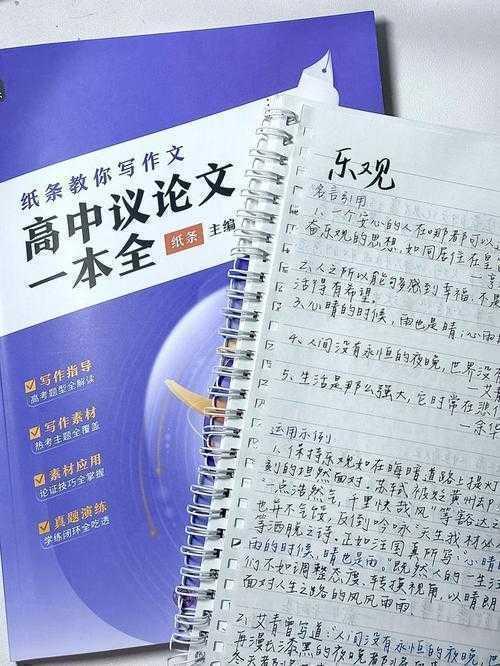 纸条教你写作文
高中议论文
一本全
纸条 主编
写作指导
高考题型全解读
写作素材
热考主题全覆盖
素材应用
论证技巧全掌握
真题演练
学练闭环全吃透
乐观
名言引用
1、一个安心的人在哪都可以
奋乐观的思想,如同居住在皇
2、人之所以能够感到幸福,不是
活得有希望。
3、心晴的时候,雨也是晴;心雨
4、人间没有永恒的夜晚,世界没有
5、生活是那么强大,它时常在悲
—余华
运用示例
1、保持乐观如在晦暗道路上接对
刻的坦然面对。苏轼被贬黄州却
一点浩然气,千里快哉风"等豁达
也并不气馁,反倒吟咏"天生我材必
等洒脱之诗。正如汪国真所写"心晴
雨的时候,晴也是雨。"既然人的一生
们不如调整态度、转换视角,以晴朗
面对人生之路的风风雨雨。
2、艾青曾写道:"人间没有永恒的夜晚
再漫长漆黑的夜晚